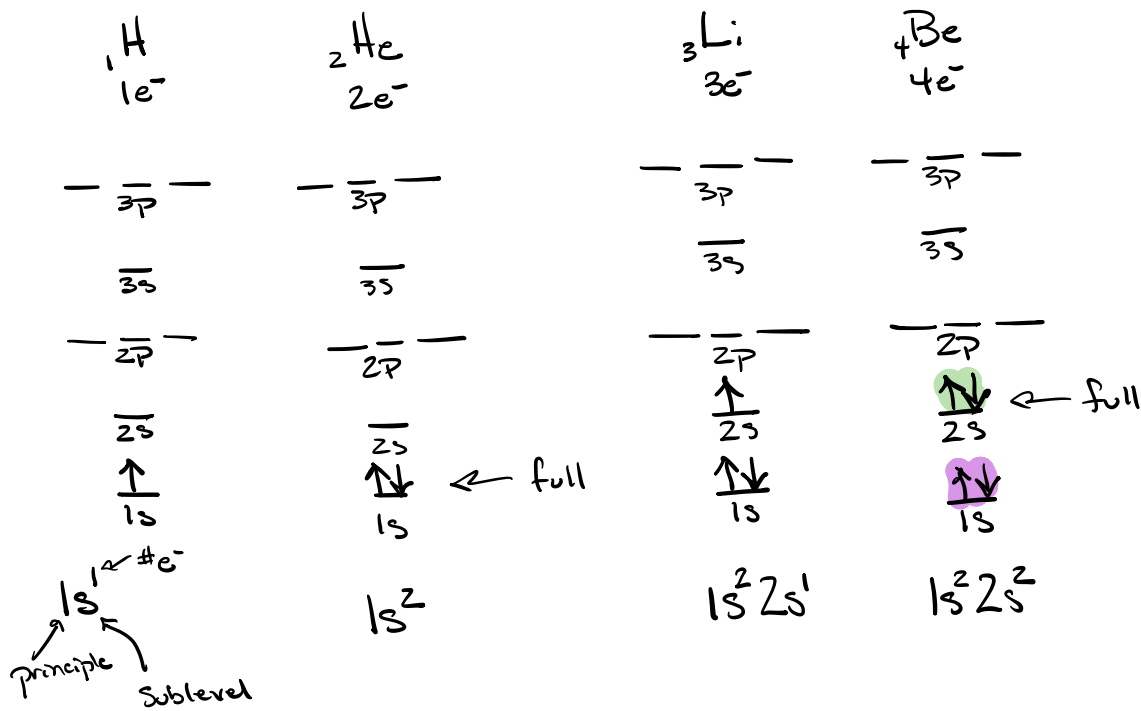 ₁H
1e⁻
3p
3s
2p
2s
↑
1s
1s¹ ← #e⁻
principle
sublevel
₂He
2e⁻
3p
3s
2p
2s
↑↓ ← full
1s
1s²
₃Li
3e⁻
3p
3s
2p
↑
2s
↑↓
1s
1s²2s¹
₄Be
4e⁻
3p
3s
2p
↑↓ ← full
2s
↑↓
1s
1s²2s²